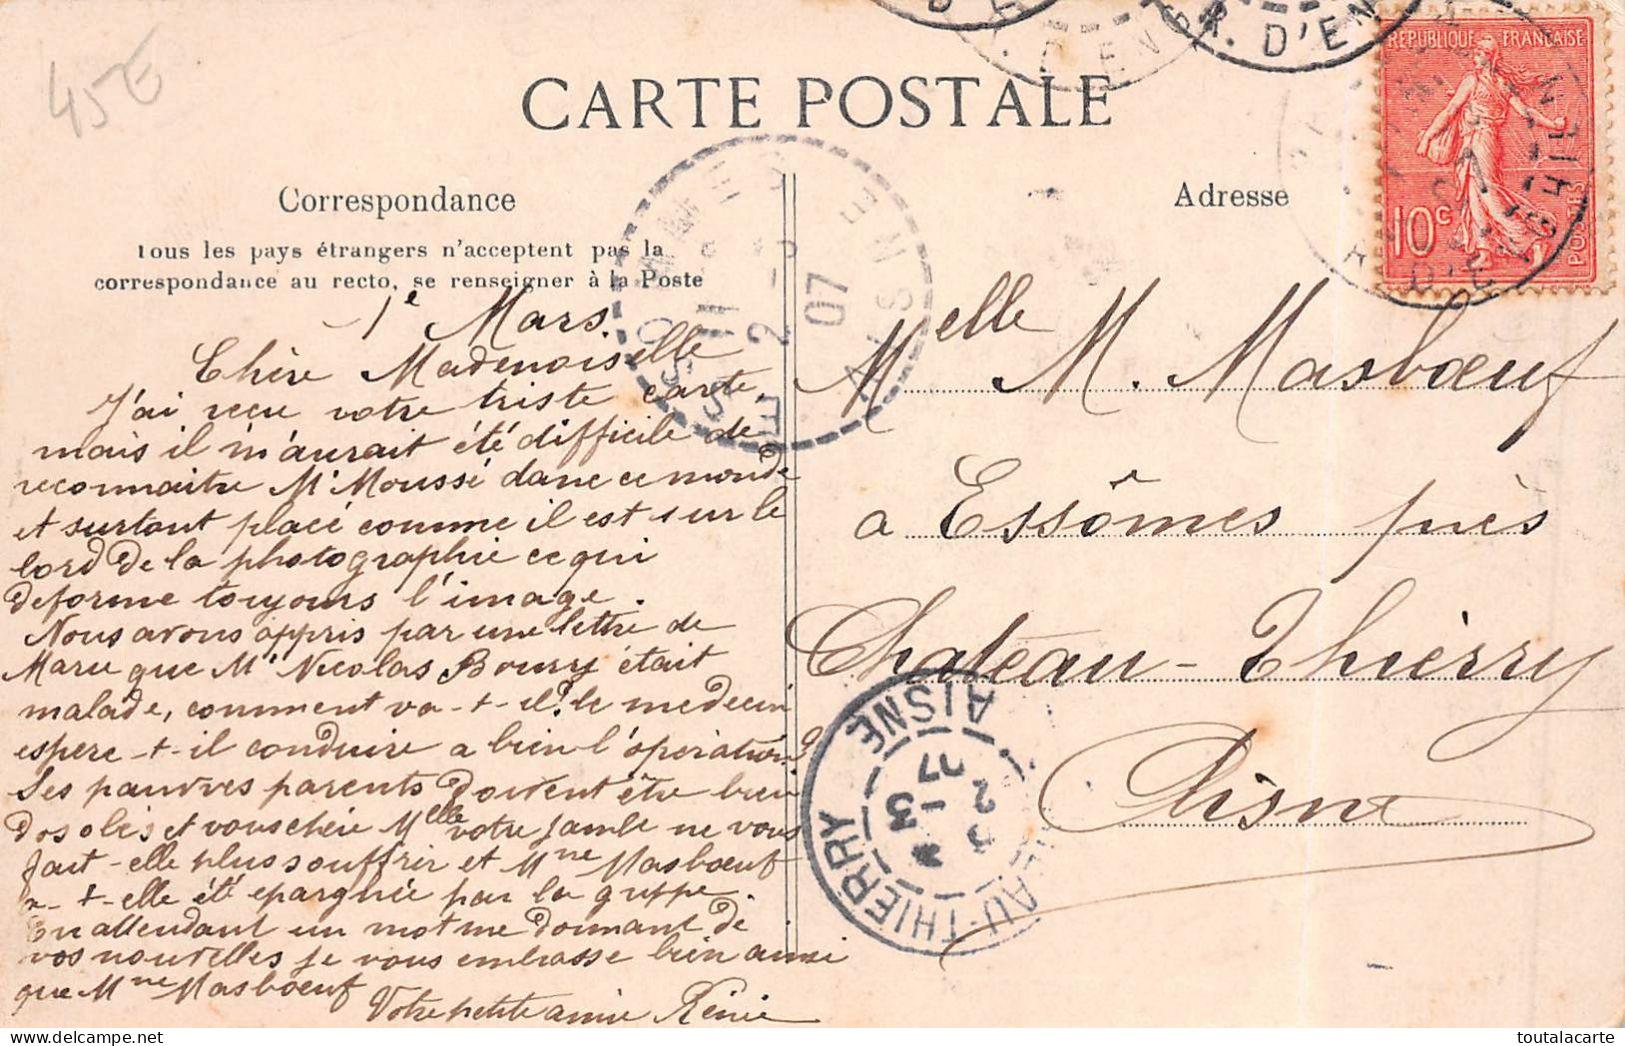 45€
CARTE POSTALE
RÉPUBLIQUE FRANÇAISE
10c
POSTES
Correspondance
Tous les pays étrangers n'acceptent pas la
correspondance au recto, se renseigner à la Poste
Adresse
1e Mars.
Chère Mademoiselle
J'ai reçu votre triste carte,
mais il m'aurait été difficile de
reconnaitre Mr Moussé dans ce monde
et surtout placé comme il est sur le
bord de la photographie ce qui
deforme toujours l'image.
Nous avons appris par une lettre de
Marie que Mr Nicolas Bourry était
malade, comment va-t-il? le medecin
espere-t-il conduire a bien l'operation?
Ses pauvres parents doivent être bien
désolés et vous chère Melle votre jambe ne vous
fait-elle plus souffrir et Mme Masbœuf
a-t-elle été epargnée par la grippe.
En attendant un mot me donnant de
vos nouvelles je vous embrasse bien ainsi
que Mme Masbœuf
Votre petite amie Rénée
Melle M. Masbœuf
a Essômes près
Chateau-Thièrry
Aisne
11
2 -3
07
AISNE
CHATEAU-THIERRY
AISNE
2 -3
07
R. D'EN
toutalacarte